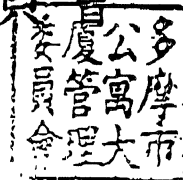 多摩市
公寓大
廈管理
委員会